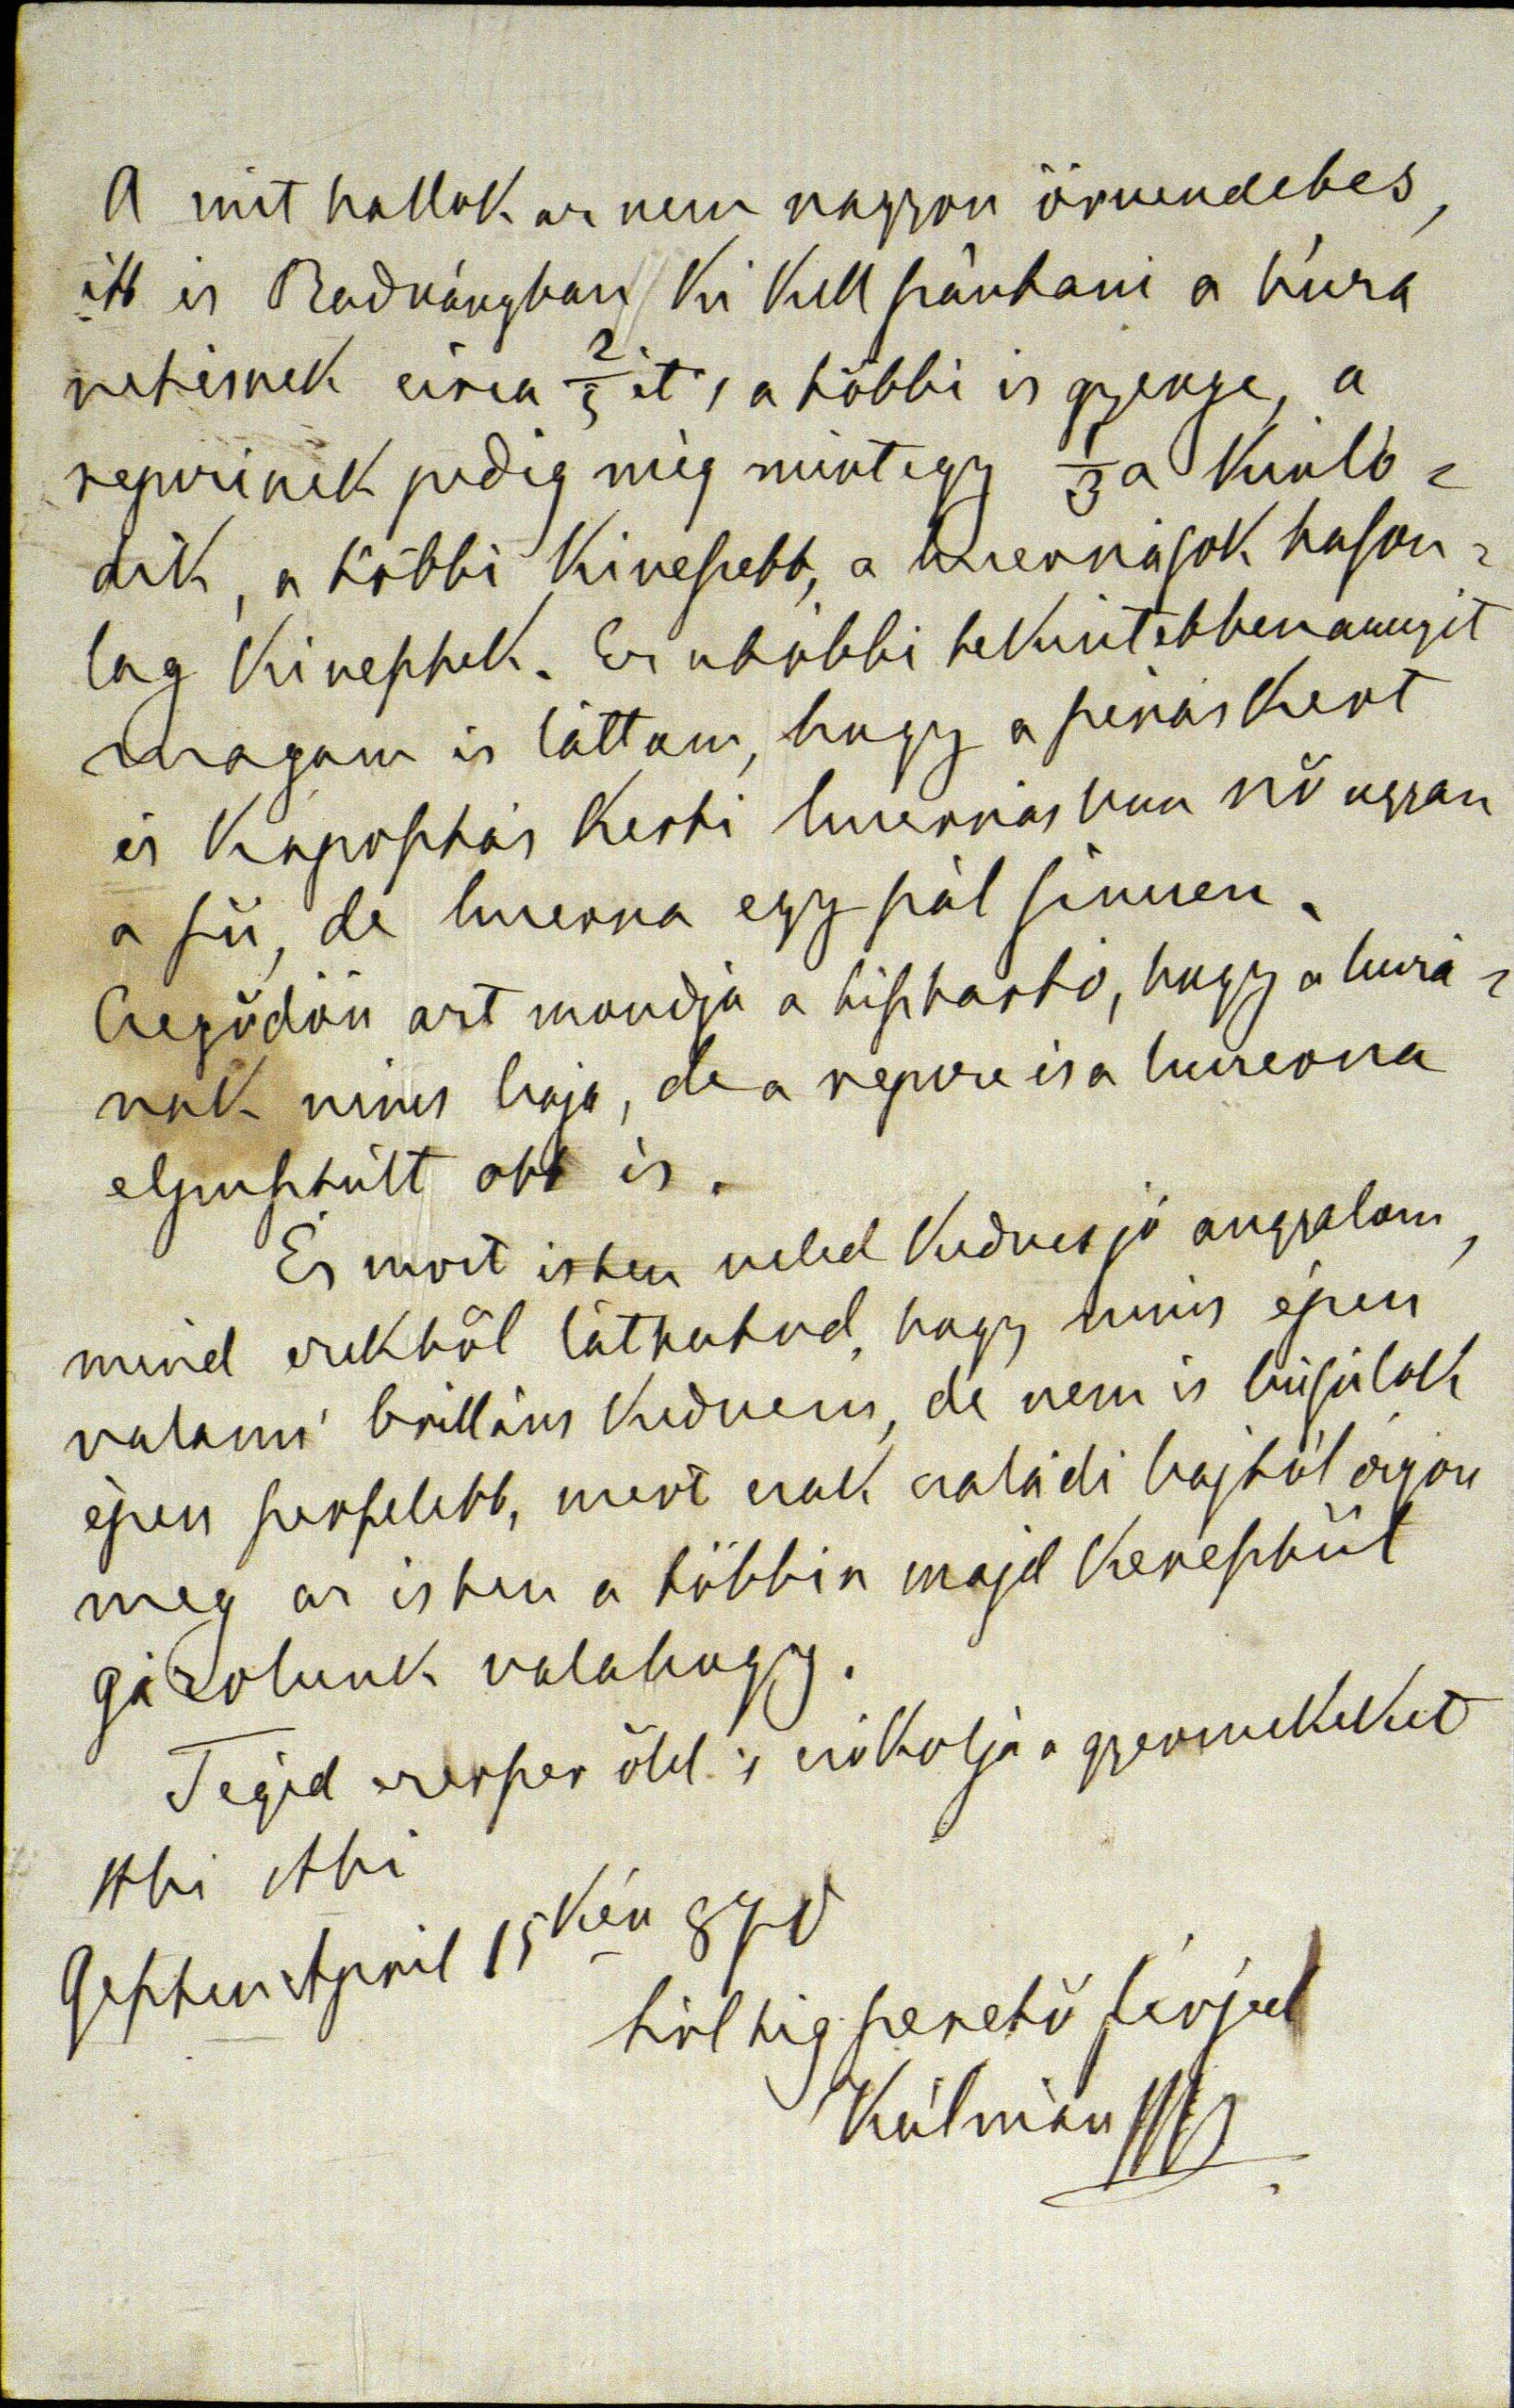 A mit hallok az nem nagyon örvendetes,
itt is Radványban ki kell szántani a búza
vetésnek circa 2/3 át, a többi is gyenge, a
repczének pedig még mintegy 1/3 a kínló=
dik, a többi kiveszett, a luczernások hason=
lag kivesztek. Ez utóbbi tekintetben annyit
magam is láttam, hogy a szérüs kert
és káposztás kerti luczernásban nő ugyan
a fü, de luczerna egy szál sincsen.
Csegődön azt mondja a tiszttartó, hogy a buzá=
nak nincs baja, de a repcze és a luczerna
elpusztúlt ott is.
És most isten veled kedves jó angyalom,
mind ezekből láthatod, hogy nincs épen
valami brilláns kedvem, de nem is búsúlok
épen szerfelett, mert csak családi bajtól óvjon
meg az isten a többin majd keresztűl
gázolunk valahogy.
Téged ezerszer ölel 's csókolja a gyermekeket
Abi Abi
Geszten April 15kén 870
hűl hig szerető férjed
Kálmán